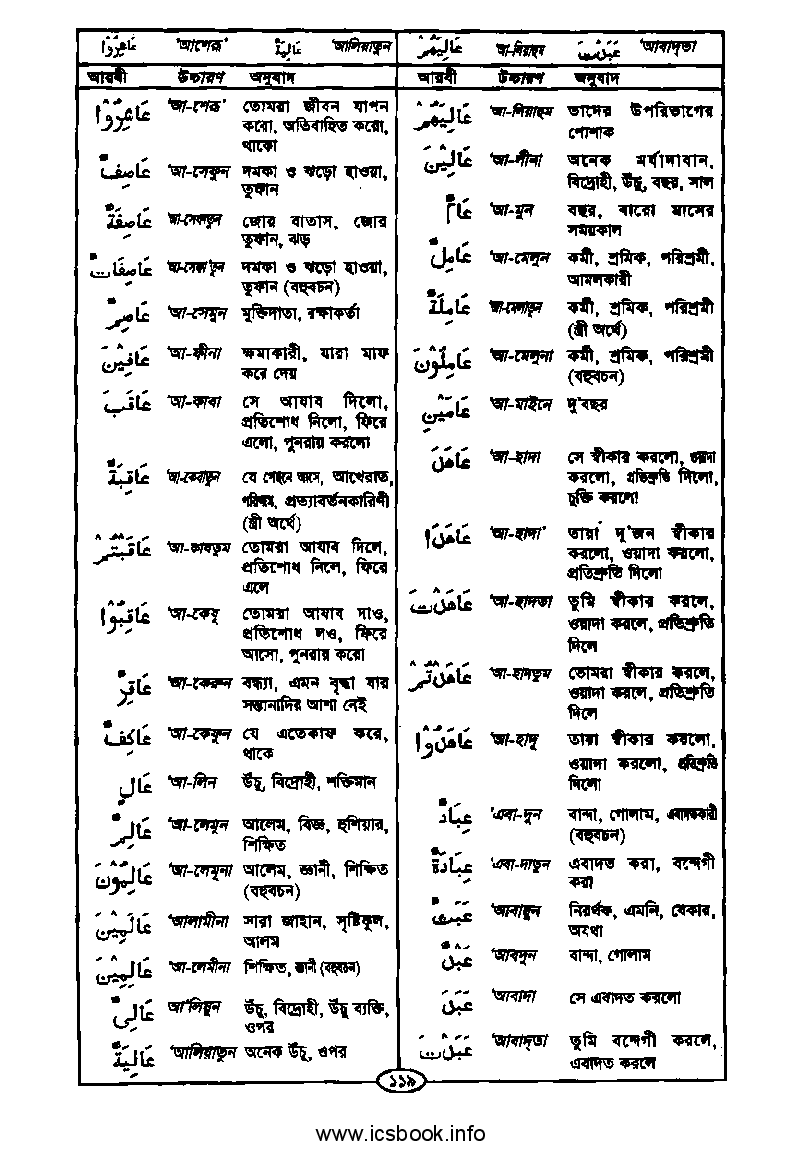 عَاشِرُوْا 'আশেরূ' عَالِيَةٌ 'আলিয়াতুন عَالِيَهُمْ 'আ-লিয়াহুম عَبَدْتَ 'আবাদ্‌তা
আরবী উচ্চারণ অনুবাদ আরবী উচ্চারণ অনুবাদ
عَاشِرُوْا 'আ-শেরূ' তোমরা জীবন যাপন
করো, অতিবাহিত করো,
থাকো
عَاصِفٌ 'আ-সেফুন দমকা ও ঝড়ো হাওয়া,
তুফান
عَاصِفَةٌ 'আ-সেফাতুন জোর বাতাস, জোর
তুফান, ঝড়
عَاصِفَاتٌ 'আ-সেফা'তুন দমকা ও ঝড়ো হাওয়া,
তুফান (বহুবচন)
عَاصِمٌ 'আ-সেমুন মুক্তিদাতা, রক্ষাকর্তা
عَافِيْنَ 'আ-ফীনা ক্ষমাকারী, যারা মাফ
করে দেয়
عَاقَبَ 'আ-কাবা সে আযাব দিলো,
প্রতিশোধ নিলো, ফিরে
এলো, পুনরায় করলো
عَاقِبَةٌ 'আ-কেবাতুন যে পেছনে আসে, আখেরাত,
পরিণাম, প্রত্যাবর্তনকারিণী
(স্ত্রী অর্থে)
عَاقَبْتُمْ 'আ-কাবতুম তোমরা আযাব দিলে,
প্রতিশোধ নিলে, ফিরে
এলে
عَاقِبُوْا 'আ-কেবূ তোমরা আযাব দাও,
প্রতিশোধ লও, ফিরে
আসো, পুনরায় করো
عَاقِرٌ 'আ-কেরুন বন্ধ্যা, এমন বৃদ্ধা যার
সন্তানাদির আশা নেই
عَاكِفٌ 'আ-কেফুন যে এতেকাফ করে,
থাকে
عَالٍ 'আ-লিন উঁচু, বিদ্রোহী, শক্তিমান
عَالِمٌ 'আ-লেমুন আলেম, বিজ্ঞ, হুশিয়ার,
শিক্ষিত
عَالِمُوْنَ 'আ-লেমূনা আলেম, জ্ঞানী, শিক্ষিত
(বহুবচন)
عَالَمِيْنَ 'আলামীনা সারা জাহান, সৃষ্টিকুল,
আলম
عَالِمِيْنَ 'আ-লেমীনা শিক্ষিত, জ্ঞানী (বহুবচন)
عَالِىٌ আ'লিয়ুন উঁচু, বিদ্রোহী, উঁচু ব্যক্তি,
ওপর
عَالِيَةٌ 'আলিয়াতুন অনেক উঁচু, ওপর
عَالِيَهُمْ 'আ-লিয়াহুম তাদের উপরিভাগের
পোশাক
عَالِيْنَ 'আ-লীনা অনেক মর্যাদাবান,
বিদ্রোহী, উঁচু, বছর, সাল
عَامٌ 'আ-মুন বছর, বারো মাসের
সময়কাল
عَامِلٌ 'আ-মেলুন কর্মী, শ্রমিক, পরিশ্রমী,
আমলকারী
عَامِلَةٌ 'আ-মেলাতুন কর্মী, শ্রমিক, পরিশ্রমী
(স্ত্রী অর্থে)
عَامِلُوْنَ 'আ-মেলুনা কর্মী, শ্রমিক, পরিশ্রমী
(বহুবচন)
عَامَيْنِ 'আ-মাইনে দু'বছর
عَاهَدَ 'আ-হাদা সে স্বীকার করলো, ওয়াদা
করলো, প্রতিশ্রুতি দিলো,
চুক্তি করলো
عَاهَدَا 'আ-হাদা' তারা দু'জন স্বীকার
করলো, ওয়াদা করলো,
প্রতিশ্রুতি দিলো
عَاهَدْتَ 'আ-হাদতা তুমি স্বীকার করলে,
ওয়াদা করলে, প্রতিশ্রুতি
দিলে
عَاهَدْتُمْ 'আ-হাদতুম তোমরা স্বীকার করলে,
ওয়াদা করলে, প্রতিশ্রুতি
দিলে
عَاهَدُوْا 'আ-হাদূ তারা স্বীকার করলো,
ওয়াদা করলো, প্রতিশ্রুতি
দিলো
عِبَادٌ 'এবা-দুন বান্দা, গোলাম, এবাদতকারী
(বহুবচন)
عِبَادَةٌ 'এবা-দাতুন এবাদত করা, বন্দেগী
করা
عَبَثٌ 'আবাছুন নিরর্থক, এমনি, বেকার,
অযথা
عَبْدٌ 'আবদুন বান্দা, গোলাম
عَبَدَ 'আবাদা সে এবাদত করলো
عَبَدْتَ 'আবাদ্‌তা তুমি বন্দেগী করলে,
এবাদত করলে
১১৯
www.icsbook.info